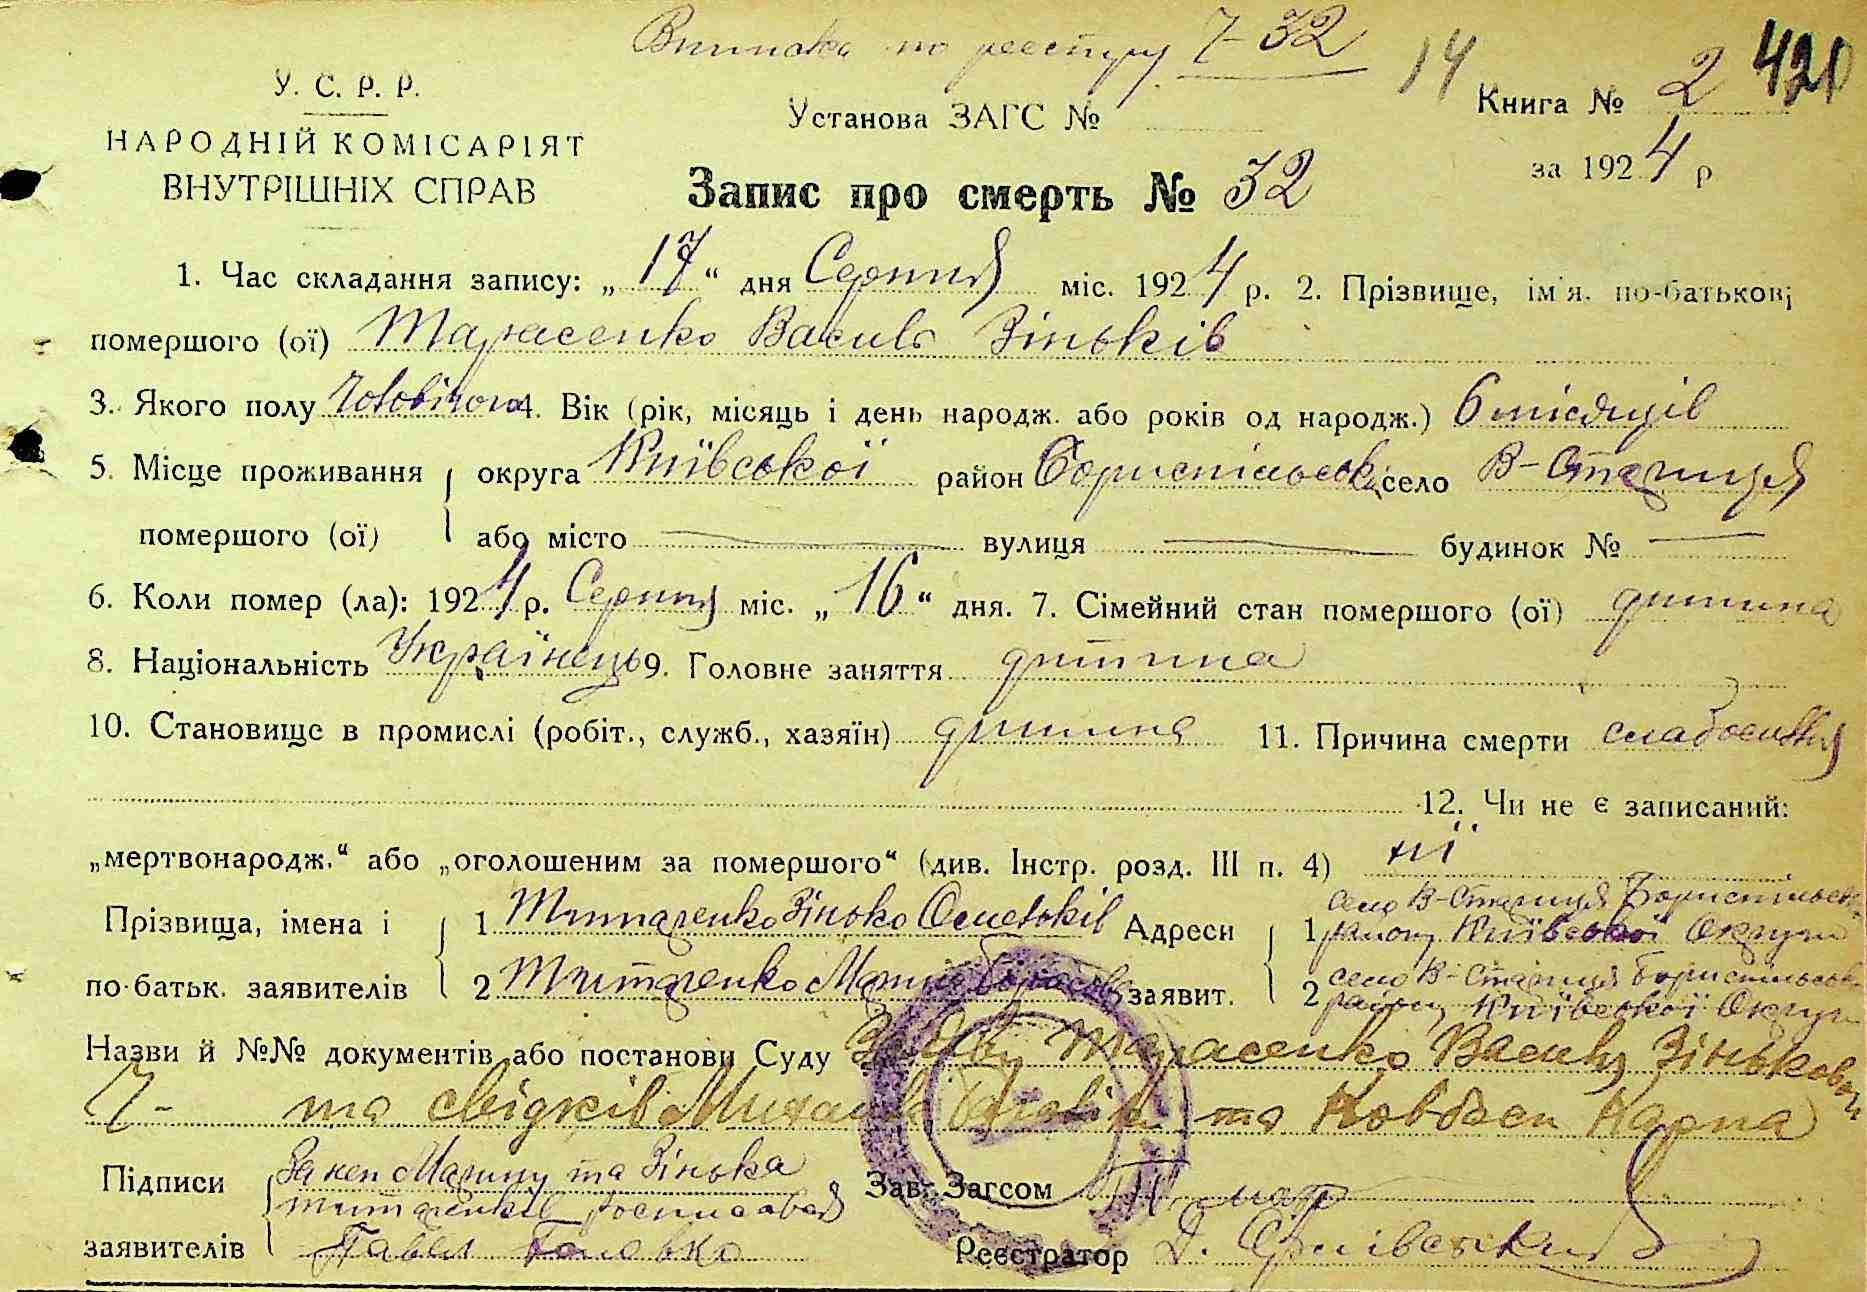 Виписка по реєстру 7-32
14
420
У. С. Р. Р.
НАРОДНІЙ КОМІСАРІЯТ
ВНУТРІШНІХ СПРАВ
Установа ЗАГС №
Книга № 2
за 1924 р
Запис про смерть № 32
1. Час складання запису: „17“ дня Серпня міс. 1924 р. 2. Прізвище, ім'я, по-батькові
помершого (ої) Тарасенко Василь Зіньків
3. Якого полу чоловічого 4. Вік (рік, місяць і день народж. або років од народж.) 6 місяців
5. Місце проживання помершого (ої) округа Київської район Бориспільськ село В-Стариця
або місто — вулиця — будинок № —
6. Коли помер (ла): 1924 р. Серпня міс. „16“ дня. 7. Сімейний стан помершого (ої) дитина
8. Національність Українець 9. Головне заняття дитина
10. Становище в промислі (робіт., служб., хазяїн) дитина 11. Причина смерти
12. Чи не є записаний:
„мертвонародж.“ або „оголошеним за помершого“ (див. Інстр. розд. III п. 4) ні
Прізвища, імена і по-батьк. заявителів
1 Титаренко Зінько
2 Титаренко
Адреси заявит.
1 село В-Стариця Бориспільськ
району Київської Округи
2 село В-Стариця Бориспільськ
району Київської Округи
Назви й №№ документів або постанови Суду Тарасенко Василь Зінькович
та свідків та Ковбаси Карпа
Підписи заявителів
За неп Марину та Зінька
Титаренків росписався
Павел Головко
Зав. Загсом
Реєстратор Д.